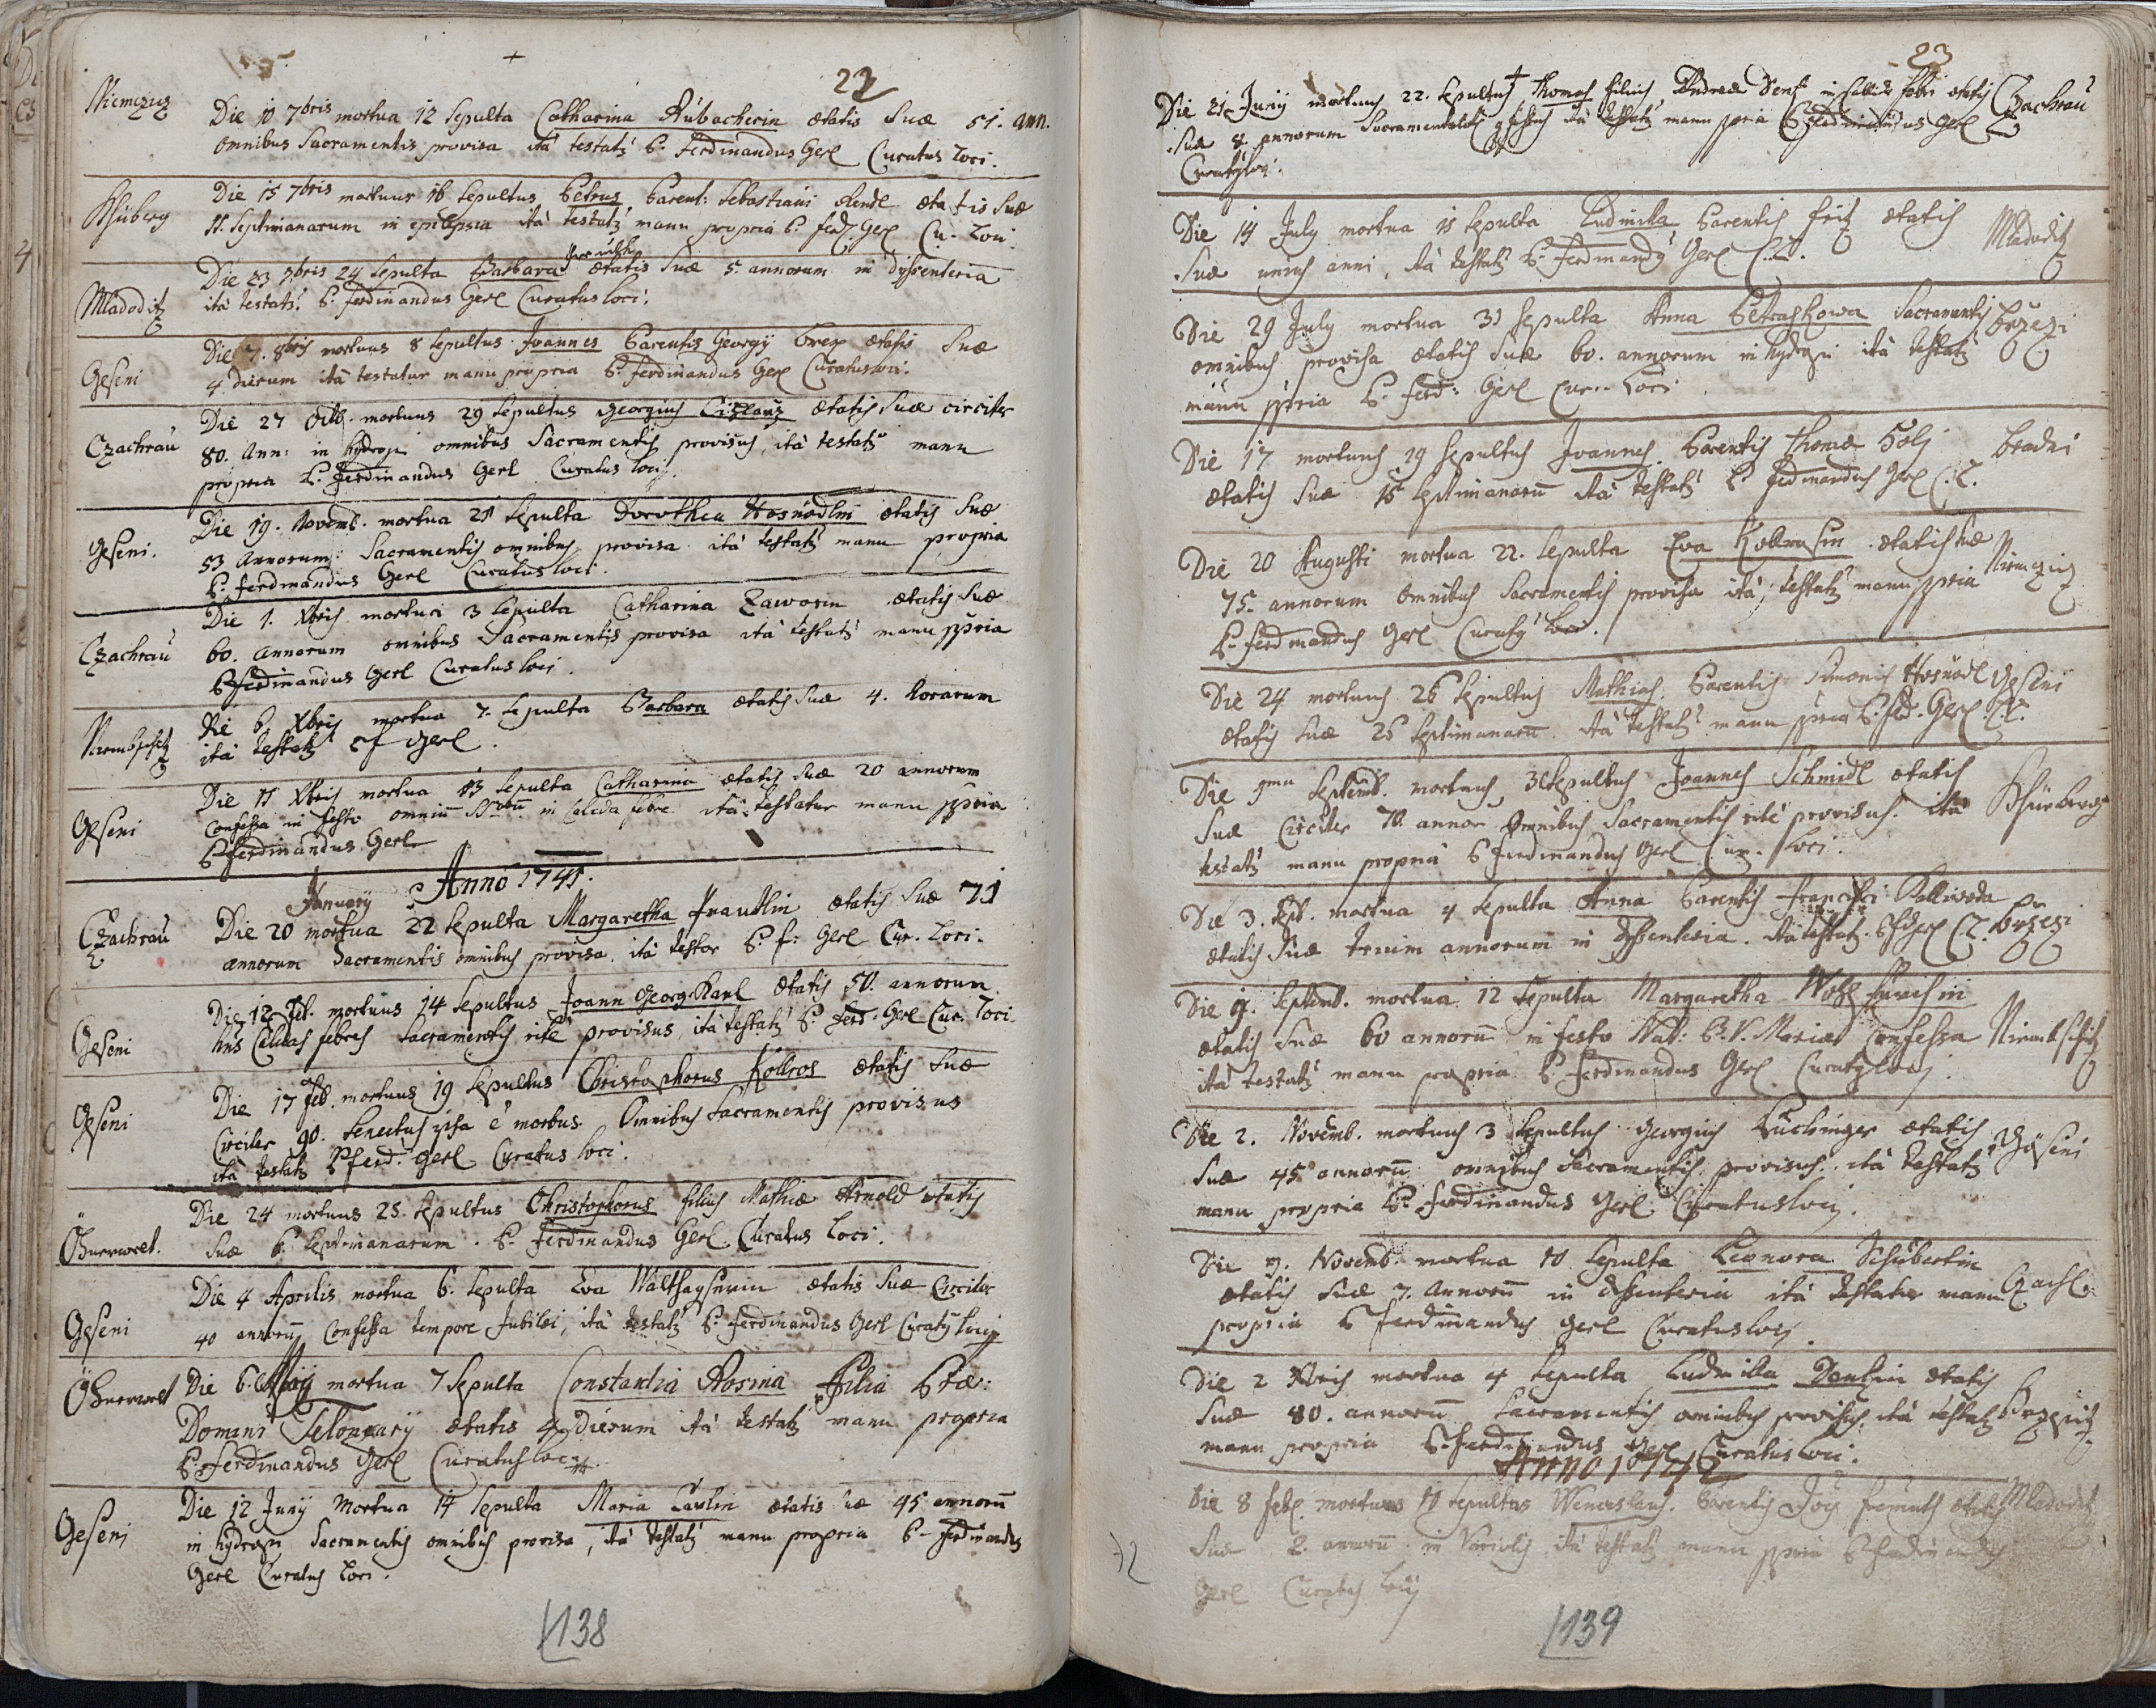 22
Niemcziz
Die 10 7bris mortua 12 Sepulta Catharina Rübacherin ætatis Suæ 51. ann.
omnibus Sacramentis provisa ità testatz P. Ferdinandus Gerl Curatus Loci.
Khüberg
Die 15 7bris mortuus 16 Sepultus Petrus Parent: Sebastiani Rendl ætatis Suæ
11. Septimanarum in epilepsia ità testatz manu propria P. Ferd. Gerl Cu. Loci.
Mladoditz
Die 23 7bris 24 Sepulta Barbara ætatis Suæ 5. annorum in dyssenteria
ità testatz P. Ferdinandus Gerl Curatus Loci.
Geseni
Die 7. 8bris mortuus 8 Sepultus Joannes Parentis Georgÿ ætatis Suæ
4 dierum ità testatur manu propria P. Ferdinandus Gerl Curatus Loci.
Czachrau
Die 27 Octb. mortuus 29 Sepultus Georgius ætatis Suæ circiter
80. Ann: in hydropi omnibus Sacramentis provisus, ità testatz manu
propria P. Ferdinandus Gerl Curatus Loci.
Geseni.
Die 19. Novemb. mortua 21 Sepulta Dorothea Hosnödlin ætatis Suæ
53 Annorum: Sacramentis omnibus provisa ità testatz manu propria
P. Ferdinandus Gerl Curatus Loci.
Czachrau
Die 1. Xbris mortua 3 Sepulta Catharina Zaworin ætatis Suæ
60. Annorum omnibus Sacramentis provisa ità testatz manu ppria
P. Ferdinandus Gerl Curatus Loci.
Niembschitz
Die 6. Xbris mortua 7. Sepulta Barbara ætatis Suæ 4. horarum
ità testatz Gerl.
Geseni
Die 11 Xbris mortua 13 Sepulta Catharina ætatis Suæ 20 annorum
Confessa in festo omnium in Calida febre ità testatur manu ppria
P. Ferdinandus Gerl
Anno 1741.
January
Czachrau
Die 20 mortua 22 Sepulta Margaretha Prautlin ætatis Suæ 71
annorum Sacramentis omnibus provisa, ità testor P. F: Gerl Cur. Loci.
Geseni
Die 12 Feb. mortuus 14 Sepultus Joann Georg Karl ætatis 50. annorum
Calidas febres Sacramentis ritè provisus, ità testatz P. Ferd. Gerl Cur. Loci.
Geseni
Die 17 Feb. mortuus 19 Sepultus Christophorus Kollros ætatis Suæ
Circiter 90. Senectus ipsa è morbus. Omnibus Sacramentis provisus
ità testatz P. Ferd. Gerl Curatus Loci.
Öhnerwelt.
Die 24 mortuus 25. Sepultus Christophorus filius Mathiæ Arnold ætatis
Suæ 6. Septimanarum. P. Ferdinandus Gerl. Curatus Loci.
Geseni
Die 4 Aprilis mortua 6. Sepulta Eva ætatis Suæ Circiter
40 annoru Confessa tempore Jubilei, ità testatz P. Ferdinandus Gerl Curatus Loci
Öhnerwelt
Die 6. Maÿ mortua 7 Sepulta Constantia Rosina Filia
Domini ætatis 4 dierum ità testatz manu propria
P. Ferdinandus Gerl Curatus Loci.
Geseni
Die 12 Junÿ Mortua 14 Sepulta Maria Paulin ætatis suæ 45 annoru
in hydropi Sacramentis omnibus provisa, ità testatz manu propria P. Ferdinandus
Gerl Curatus Loci.
138
23
Die 21 Junÿ mortuus 22. Sepultus Thomas filius Andreæ in Calida febri ætatis Czachrau
Suæ 8. annorum ità testatz manu ppria P. Ferdinandus Gerl
Curatus Loci.
Die 14 July mortua 15 Sepulta Ludmila Parentis Fritz ætatis Mladoditz
Suæ unius anni, ità testatz P. Ferdinandus Gerl C. L.
Die 29 July mortua 31 Sepulta Anna Petraskowa Sacramentis Brzezi
omnibus provisa ætatis Suæ 60. annorum in hydropi ità testatz
manu ppria P. Ferd: Gerl Cur. Loci
Die 17 mortuus 19 Sepultus Joannes. Parentis Thomæ Bradni
ætatis Suæ 15 Septimanaru ità testatz P. Ferdinandus Gerl C. L.
Die 20 Augusti mortua 22. Sepulta Eva Kollrosin ætatis suæ Niemcziz
75. annorum omnibus Sacramentis provisa ità testatz manu ppria
P. Ferdinandus Gerl Curatus Loci.
Die 24 mortuus 26 Sepultus Mathias. Parentis Simonis Hosnödl Geseni
ætatis Suæ 26 Septimanaru ità testatz manu ppria P. Ferd. Gerl. C. L.
Die Septemb. mortuus, 3 Sepultus Joannes Schmidl ætatis
Suæ Circiter 70. annor Omnibus Sacramentis ritè provisus. ità Khünberg
testatz manu propria P. Ferdinandus Gerl Cur. Loci.
Die 3. Sept. mortua 4 Sepulta Anna Parentis Francisci Kolliwoda
ætatis Suæ trium annorum in dyssenteria. ità testatz. Gerl C. L. Brzezi
Die 9. Septemb. mortua 12 Sepulta Margaretha
ætatis Suæ 60 annoru in festo Nat: B. V. Mariæ Confessa Niembschitz
ità testatz manu propria P. Ferdinandus Gerl. Curatus Loci.
Die 2. Novemb. mortuus 3 Sepultus Georgius ætatis
Suæ 45 annoru omnibus Sacramentis provisus. ità testatz Göseni
manu propria P. Ferdinandus Gerl. Curatus Loci.
Die 9. Novemb. mortua 10 Sepulta Leonora Schubertin
ætatis Suæ 7. Annoru in dyssenteria ità testatur manu Czach.
propria P. Ferdinandus Gerl Curatus Loci.
Die 2 Xbris mortua 4 Sepulta Ludmila ætatis
Suæ 80. annoru Sacramentis omnibus provisa, ità testatz
manu propria P. Ferdinandus Gerl Curatus Loci.
Anno 1742
Die 8 Feb. mortuus 11 Sepultus Wenceslaus. Parentis ætatis Mladoditz
Suæ 2. annoru in Variolis ità testatz manu ppria P. Ferdinandus
Gerl Curatus Loci
139